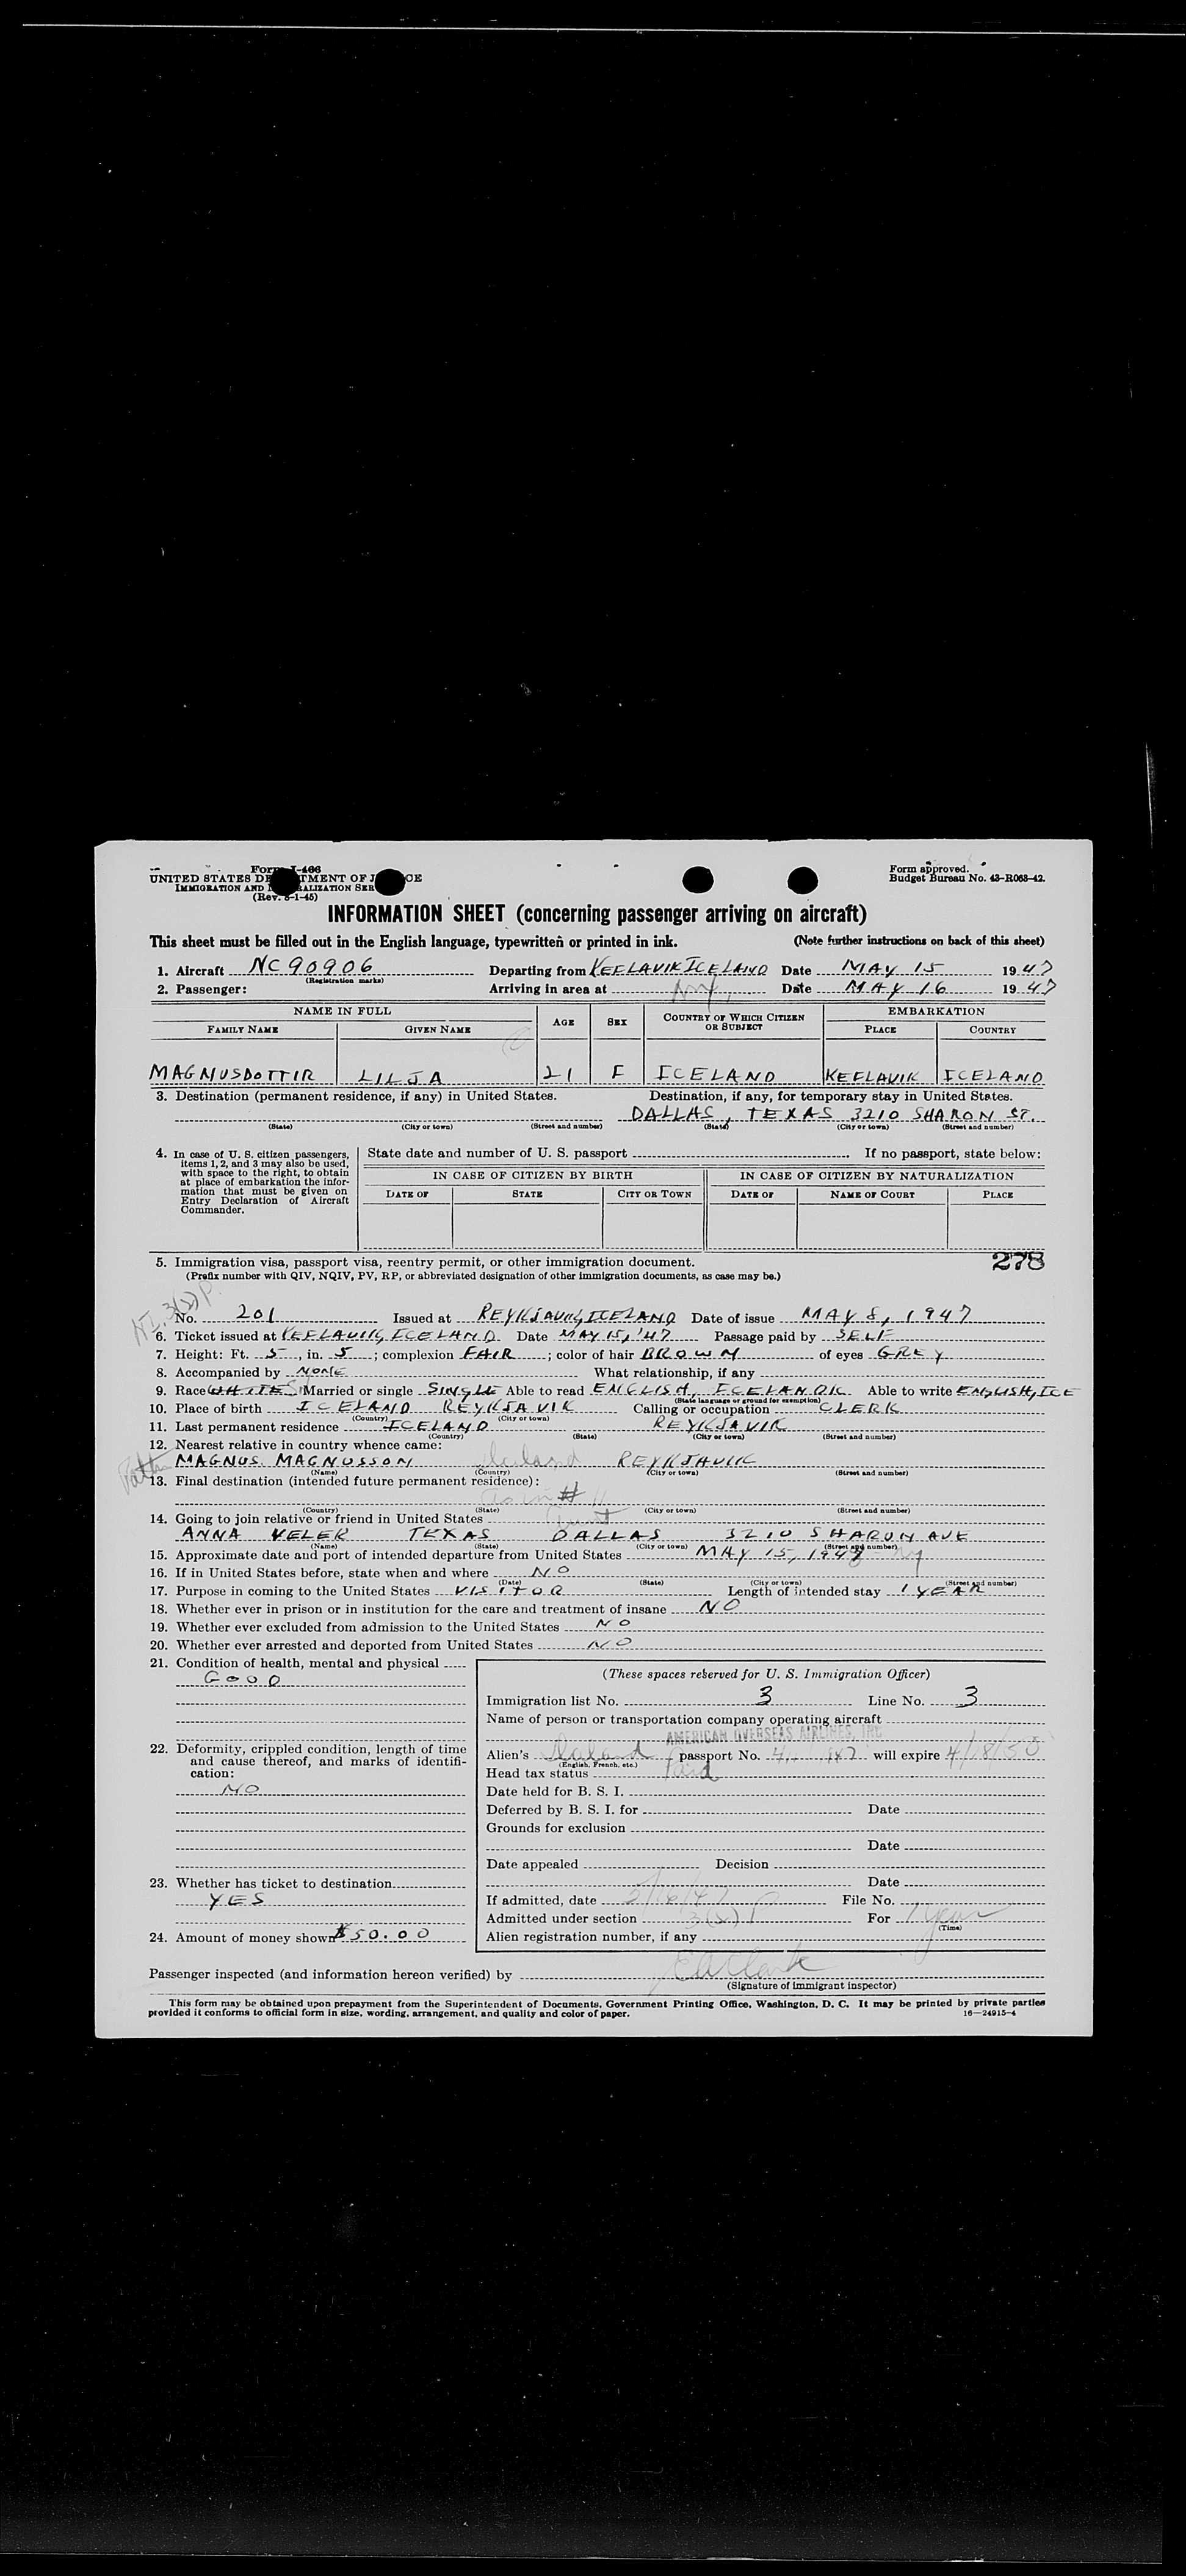 Form I-466
UNITED STATES DEPARTMENT OF JUSTICE
IMMIGRATION AND NATURALIZATION SERVICE
(Rev. 8-1-45)
Form approved.
Budget Bureau No. 43-R063-42.
INFORMATION SHEET (concerning passenger arriving on aircraft)
This sheet must be filled out in the English language, typewritten or printed in ink. (Note further instructions on back of this sheet)
1. Aircraft NC90906 Departing from KEFLAVIK ICELAND Date MAY 15 1947
(Registration marks)
2. Passenger: Arriving in area at N.Y. Date MAY 16 1947
NAME IN FULL AGE SEX COUNTRY OF WHICH CITIZEN OR SUBJECT EMBARKATION
FAMILY NAME GIVEN NAME PLACE COUNTRY
MAGNUSDOTTIR LILJA 21 F ICELAND KEFLAVIK ICELAND
3. Destination (permanent residence, if any) in United States. Destination, if any, for temporary stay in United States.
DALLAS, TEXAS 3210 SHARON ST.
(State) (City or town) (Street and number) (State) (City or town) (Street and number)
4. In case of U. S. citizen passengers, items 1, 2, and 3 may also be used, with space to the right, to obtain at place of embarkation the information that must be given on Entry Declaration of Aircraft Commander.
State date and number of U. S. passport If no passport, state below:
IN CASE OF CITIZEN BY BIRTH IN CASE OF CITIZEN BY NATURALIZATION
DATE OF STATE CITY OR TOWN DATE OF NAME OF COURT PLACE
278
5. Immigration visa, passport visa, reentry permit, or other immigration document.
(Prefix number with QIV, NQIV, PV, RP, or abbreviated designation of other immigration documents, as case may be.)
No. 201 Issued at REYKJAVIK, ICELAND Date of issue MAY 8, 1947
6. Ticket issued at KEFLAVIK, ICELAND Date MAY 15, '47 Passage paid by SELF
7. Height: Ft. 5, in. 5; complexion FAIR; color of hair BROWN of eyes GREY
8. Accompanied by NONE What relationship, if any
9. Race WHITE Married or single SINGLE Able to read ENGLISH, ICELANDIC Able to write ENGLISH, ICE
(State language or ground for exemption)
10. Place of birth ICELAND REYKJAVIK Calling or occupation CLERK
(Country) (City or town)
11. Last permanent residence ICELAND REYKJAVIK
(Country) (State) (City or town) (Street and number)
12. Nearest relative in country whence came:
Father MAGNUS MAGNUSSON Iceland REYKJAVIK
(Name) (Country) (City or town) (Street and number)
13. Final destination (intended future permanent residence):
# 11
(Country) (State) (City or town) (Street and number)
14. Going to join relative or friend in United States Aunt
ANNA VELER TEXAS DALLAS 3210 SHARON AVE
(Name) (State) (City or town) (Street and number)
15. Approximate date and port of intended departure from United States MAY 15, 194
16. If in United States before, state when and where NO
(Date) (State) (City or town) (Street and number)
17. Purpose in coming to the United States VISITOR Length of intended stay 1 YEAR
18. Whether ever in prison or in institution for the care and treatment of insane NO
19. Whether ever excluded from admission to the United States NO
20. Whether ever arrested and deported from United States NO
21. Condition of health, mental and physical
GOOD
22. Deformity, crippled condition, length of time and cause thereof, and marks of identification:
NO
23. Whether has ticket to destination
YES
24. Amount of money shown $50.00
(These spaces reserved for U. S. Immigration Officer)
Immigration list No. 3 Line No. 3
Name of person or transportation company operating aircraft
AMERICAN OVERSEAS AIRLINES, INC.
Alien's Iceland passport No. will expire 4/18/50
(English, French, etc.)
Head tax status Paid
Date held for B. S. I.
Deferred by B. S. I. for Date
Grounds for exclusion
Date
Date appealed Decision
Date
If admitted, date 5/16/47 File No.
Admitted under section 3(2) P For 1 year
(Time)
Alien registration number, if any
Passenger inspected (and information hereon verified) by EA Clark
(Signature of immigrant inspector)
This form may be obtained upon prepayment from the Superintendent of Documents, Government Printing Office, Washington, D. C. It may be printed by private parties
provided it conforms to official form in size, wording, arrangement, and quality and color of paper. 16—24915-4